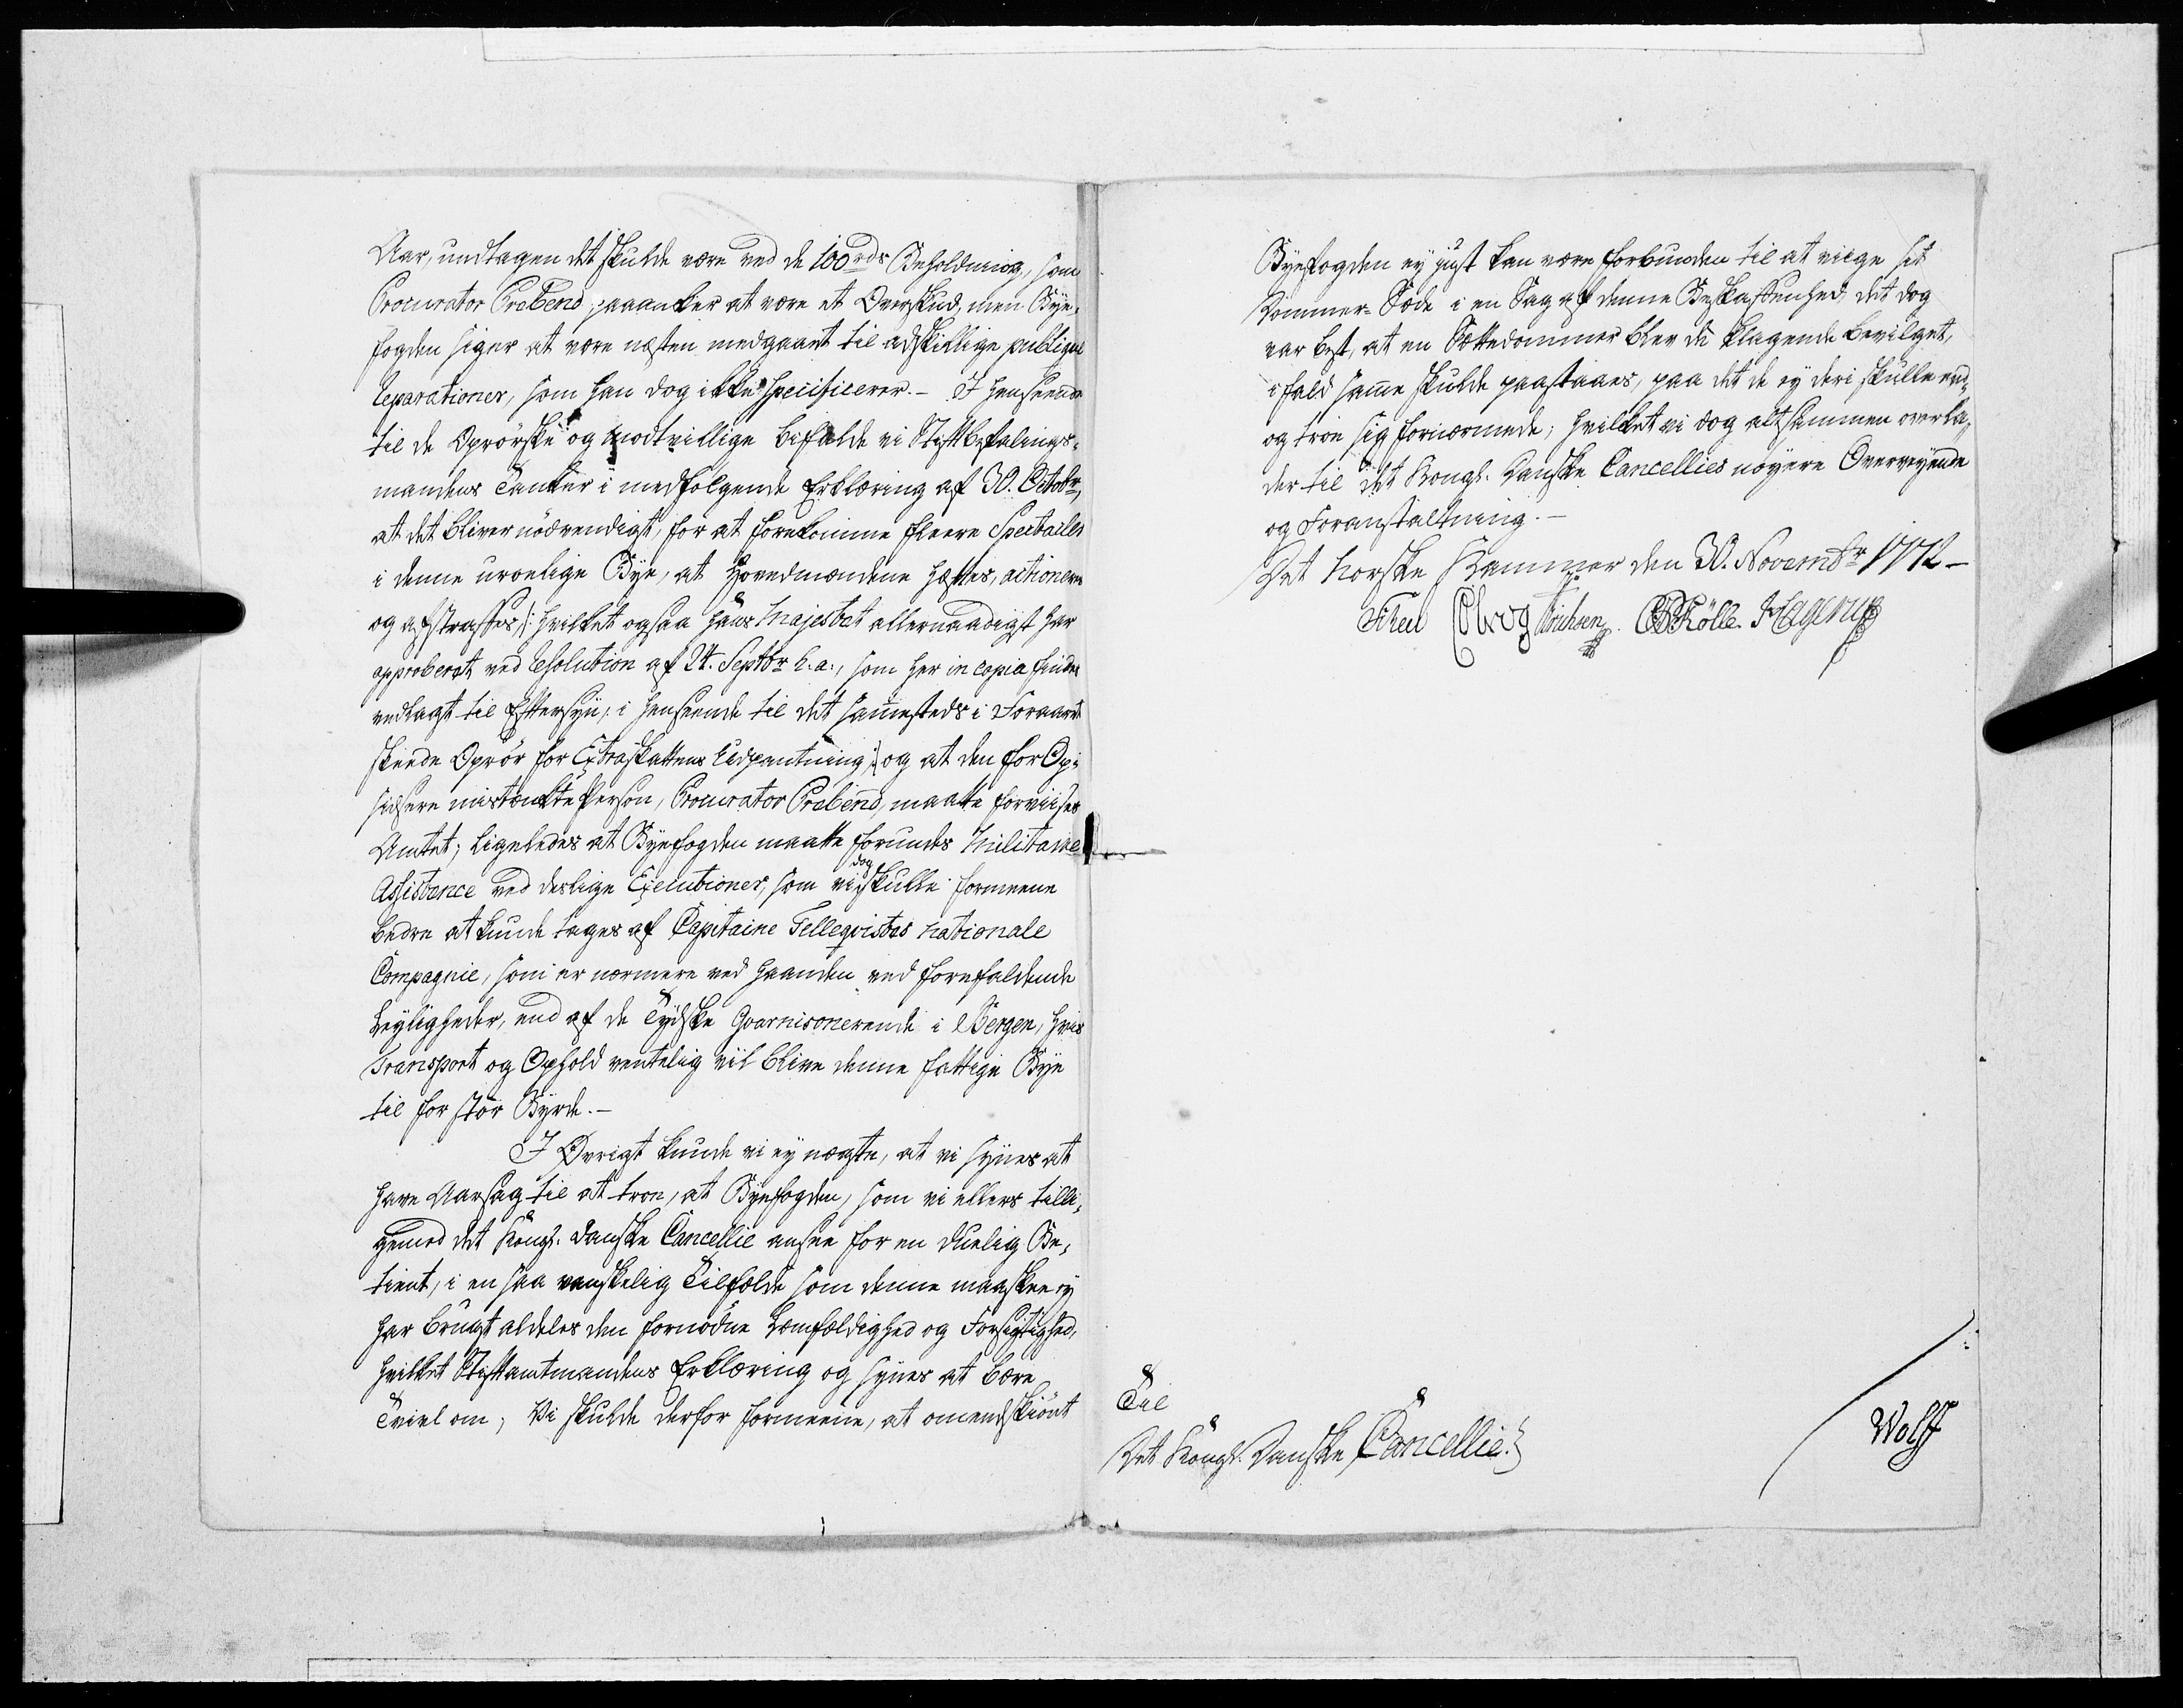 Aar, undtagen det skulde være ved de 100 rdr Beholdning, som
Procurator Prebend paaanker at være et Overskud, men Bye-
fogden siger at være næsten medgaaet til adskillige publique
Reparationer, som han dog ikke specificerer. - I Henseende
til de Oprørske og Modvillige bifalde vi Stiftbefalings-
mandens Tanker i medfølgende Erklæring af 30. Octobr,
at det bliver nødvendigt, for at forekomme fleere Spectacles
i denne uroelige Bye, at Hovedmændene hæftes, actioneres
og afstraffes, /: hvilket ogsaa Hans Majestet allernaadigst har
approberet ved Resolution af 24. Septbr h: a:, som her in copia findes
vedlagt til Eftersyn, i Henseende til det sammesteds i Foraaret
skeede Oprør for Extraskattens Udpantning :/ og at den for Op-
hidsere mistænkte Person, Procurator Prebend, maatte forviises
Amtet; ligeledes at Byefogden maatte forundes Militaire
dog
Assistence ved deslige Executioner, som vi skulle formeene
bedre at kunde tages af Capitaine Tellequistes Nationale
Compagnie, som er nærmere ved Haanden ved forefaldende
Leyligheder, end af de Tydske Guarnisonerende i Bergen, hvis
Transport og Ophold ventelig vil blive denne fattige Bye
til for stor Byrde. -
I Øvrigt kunde vi ey nægte, at vi synes at
have Aarsag til at troe, at Byefogden, som vi ellers tilli-
gemed det Kongl. Danske Cancellie ansee for en duelig Be-
tient, i en saa vanskelig Tilfælde som denne maaskee ey
har brugt aldeles den fornødne Lemfældighed og Forsigtighed,
hvilket Stiftamtmandens Erklæring og synes at bære
Tvivl om; Vi skulde derfor formeene, at omendskiønt
Byefogden ey just kan være forbunden til at viige sit
Dommer-Sæde i en Sag af denne Beskaffenhed, det dog
var best, at en Sættedommer blev de klagende bevilget,
i fald samme skulde paastaaes, paa det de ey deri skulle end
og troe sig fornærmede; hvilket vi dog altsammen overla-
der til det Kongl. Danske Cancellies nøyere Overveyende
og Foranstaltning. -
Det Norske Kammer den 30. Novembr 1772 -
Erichsen. Kölle. Hagerup
Til
Det Kongl. Danske Cancellie.
Wolff